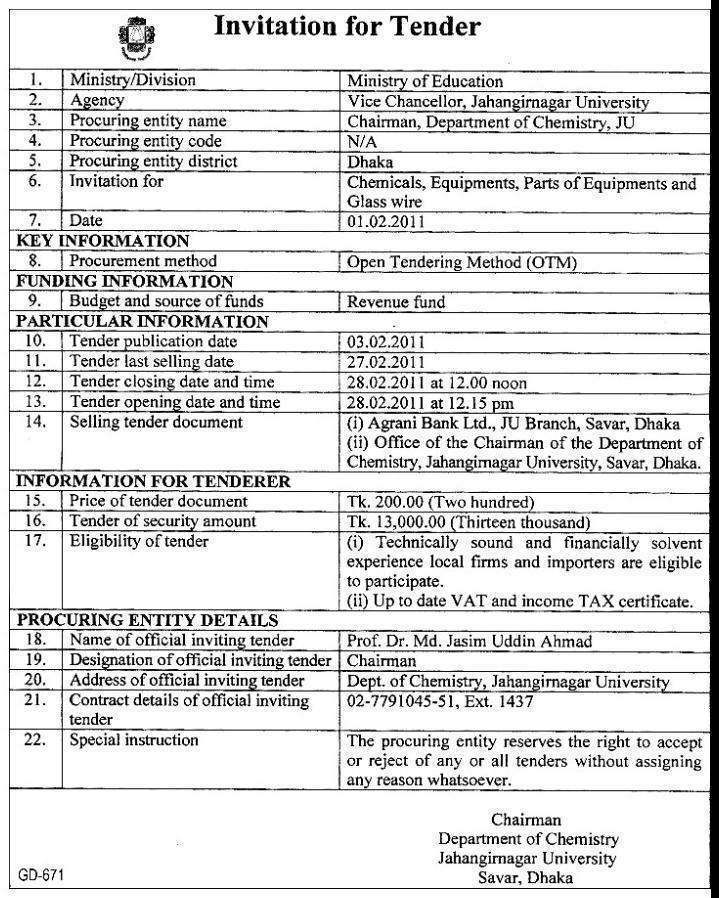 Invitation for Tender
1. Ministry/Division Ministry of Education
2. Agency Vice Chancellor, Jahangirnagar University
3. Procuring entity name Chairman, Department of Chemistry, JU
4. Procuring entity code N/A
5. Procuring entity district Dhaka
6. Invitation for Chemicals, Equipments, Parts of Equipments and
Glass wire
7. Date 01.02.2011
KEY INFORMATION
8. Procurement method Open Tendering Method (OTM)
FUNDING INFORMATION
9. Budget and source of funds Revenue fund
PARTICULAR INFORMATION
10. Tender publication date 03.02.2011
11. Tender last selling date 27.02.2011
12. Tender closing date and time 28.02.2011 at 12.00 noon
13. Tender opening date and time 28.02.2011 at 12.15 pm
14. Selling tender document (i) Agrani Bank Ltd., JU Branch, Savar, Dhaka
(ii) Office of the Chairman of the Department of
Chemistry, Jahangirnagar University, Savar, Dhaka.
INFORMATION FOR TENDERER
15. Price of tender document Tk. 200.00 (Two hundred)
16. Tender of security amount Tk. 13,000.00 (Thirteen thousand)
17. Eligibility of tender (i) Technically sound and financially solvent
experience local firms and importers are eligible
to participate.
(ii) Up to date VAT and income TAX certificate.
PROCURING ENTITY DETAILS
18. Name of official inviting tender Prof. Dr. Md. Jasim Uddin Ahmad
19. Designation of official inviting tender Chairman
20. Address of official inviting tender Dept. of Chemistry, Jahangirnagar University
21. Contract details of official inviting 02-7791045-51, Ext. 1437
tender
22. Special instruction The procuring entity reserves the right to accept
or reject of any or all tenders without assigning
any reason whatsoever.
Chairman
Department of Chemistry
Jahangirnagar University
Savar, Dhaka
GD-671